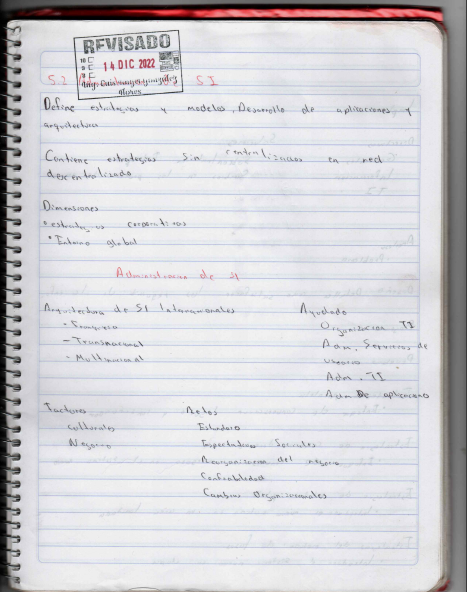 REVISADO
14 DIC 2022
5.2 SI
Define estrategias y modelos, Desarrollo de aplicaciones y
arquitectura
Contiene estrategias Sin centralizados en red
descentralizado
Dimensiones
• estrategias corporativas
• Entorno global
Administración de SI
Arquitectura de SI Internacionales
- Transnacional
- Multinacional
Ayudado
Organizacion, TI
Adm. Servicios de
usuario
Adm. TI
Adm De aplicaciones
Factores
culturales
Negocio
Retos
Estandares
Expectativas Sociales
Reorganizacion del negocio
Confiabilidad
Cambios Organizacionales